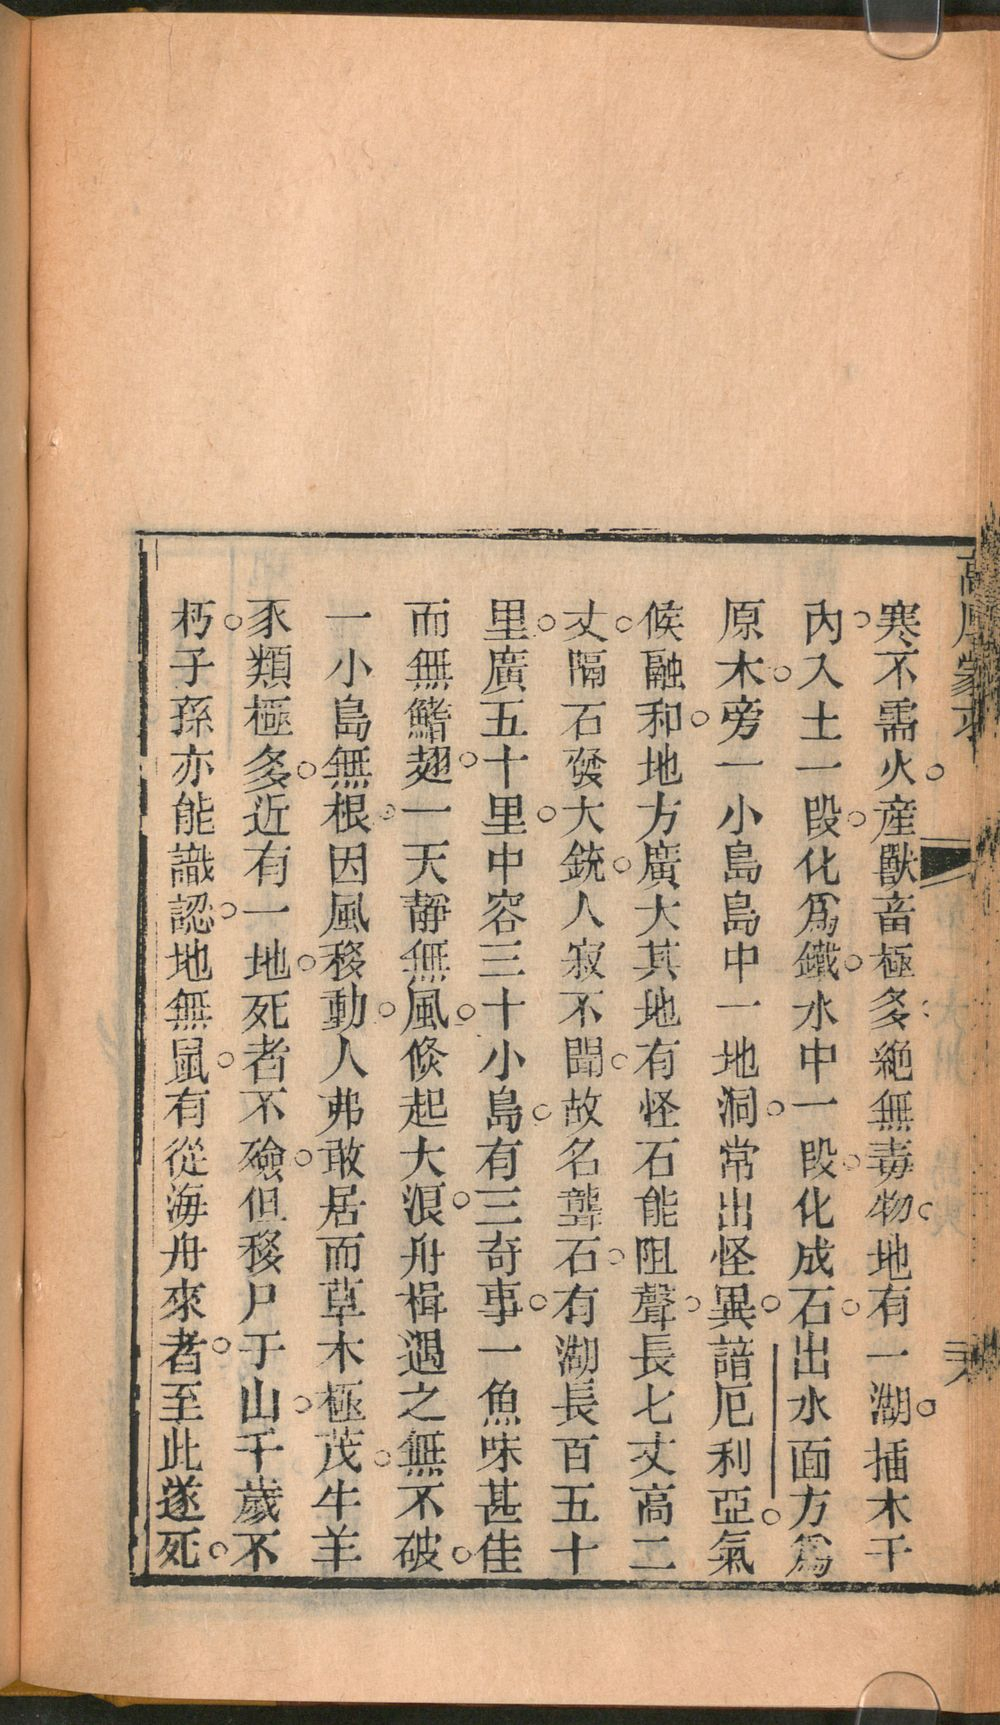 高厚蒙求
寒不需火。產獸畜極多絶無毒物。地有一湖。插木于
內。入土一段。化爲鐵。水中一段。化成石。出水面方爲
原木。旁一小島島中一地洞。常出怪異。諳厄利亞。氣
候融和。地方廣大其地有怪石能阻聲。長七丈高二
丈。隔石發大銃。人寂不聞。故名聾石。有湖長百五十
里。廣五十里。中容三十小島。有三奇事。一魚味甚佳
而無鰭翅。一天靜無風。倏起大浪。舟楫遇之無不破。
一小島無根。因風移動。人弗敢居而草木極茂。牛羊
豕類極多。近有一地。死者不殮。但移尸于山。千歲不
朽。子孫亦能識認。地無鼠。有從海舟來者。至此遂死。